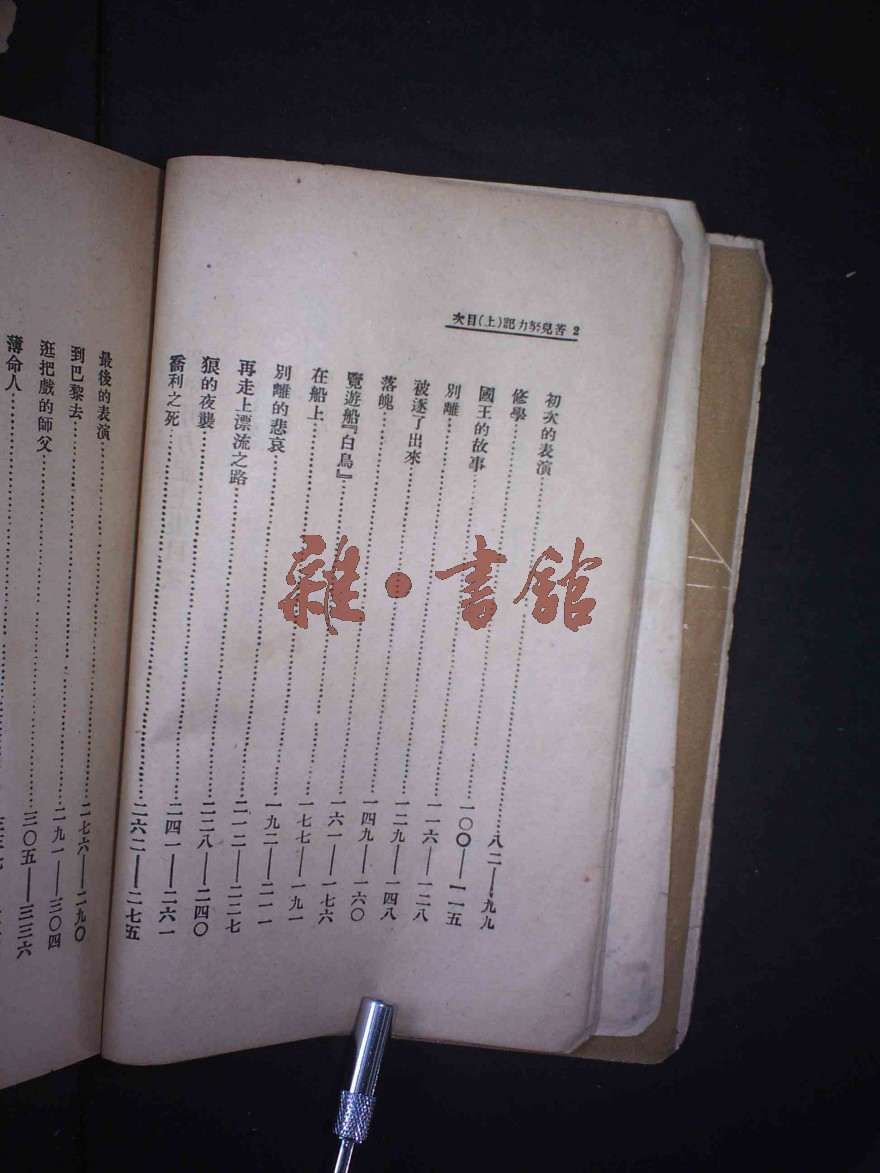 2 苦兒努力記(上)目次
初次的表演……八二—九九
修學……一〇〇—一一五
國王的故事……一一六—一二八
別離……一二九—一四八
被逐了出來……一四九—一六〇
落魄……一六一—一七六
覽遊船『白鳥』……一七七—一九一
在船上……一九二—二一一
別離的悲哀……二一二—二二七
再走上漂流之路……二二八—二四〇
狼的夜襲……二四一—二六一
喬利之死……二六二—二七五
最後的表演……二七六—二九〇
到巴黎去……二九一—三〇四
逛把戲的師父……三〇五—三三六
薄命人……
雜・書館